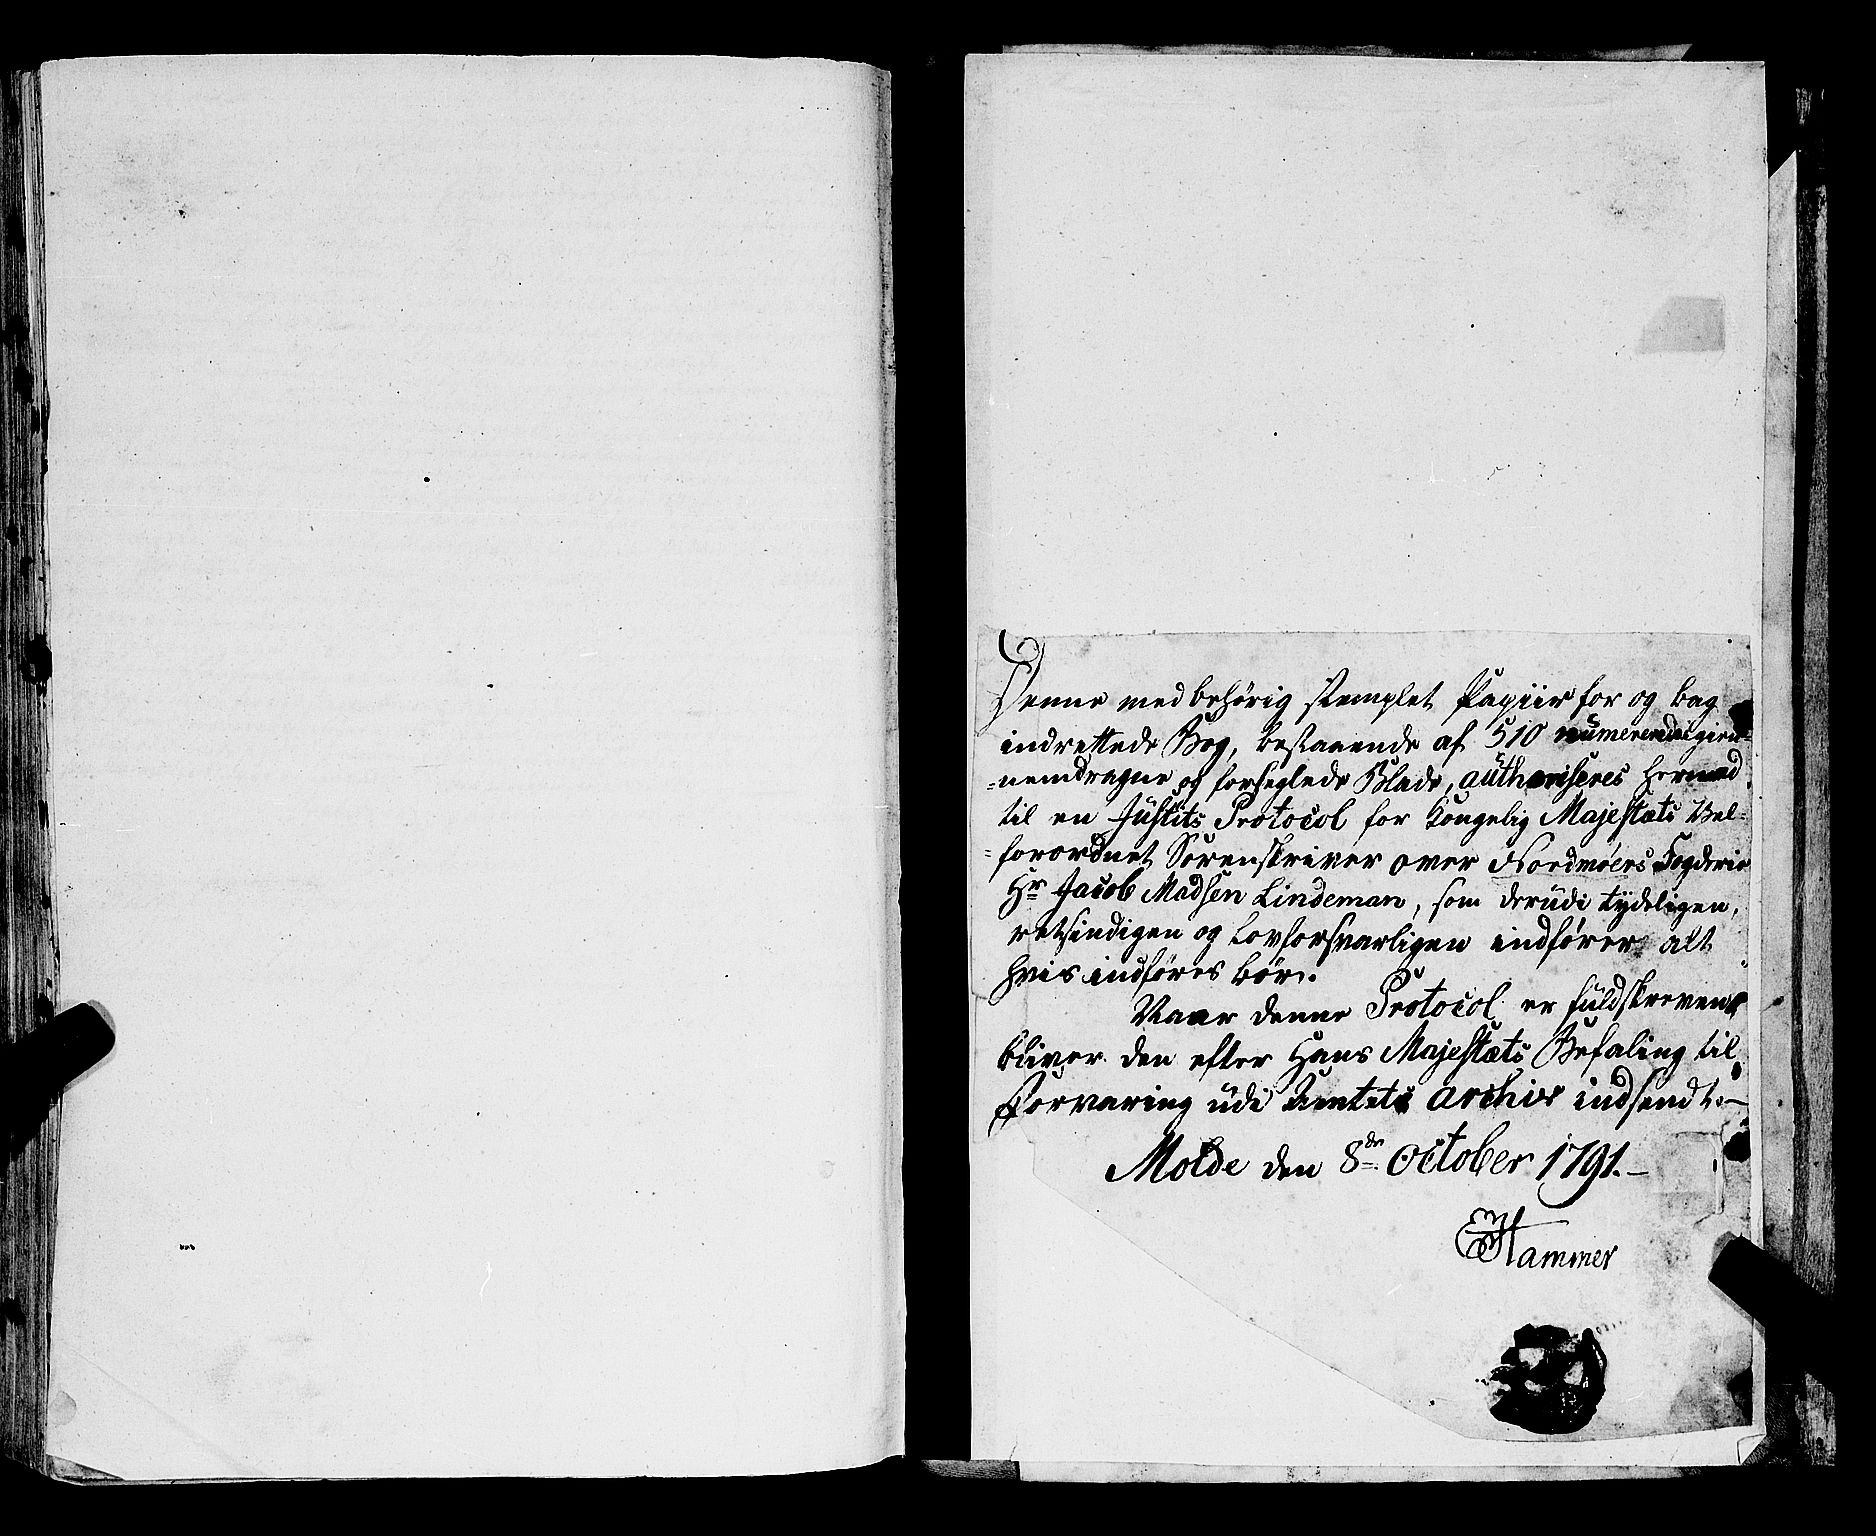 Denne med behörig stemplet Papiir for og bag
indrettede Bog, bestaaende af 510 numererede gien-
=nemdragne og forseglede Blade, authoriseres hermed
til en Justits Protocol for Kongelig Majestæts Vel-
=forordnet Sorenskriver over Nordmöers Fogderie
Hr Jacob Madsen Lindeman, som derudi tydeligen,
retsindigen og Lovforsvarligen indförer alt
hvis indföres bör.
Naar denne Protocol er fuldskreven,
bliver den efter Hans Majestæts Befaling til
Forvaring udi Amtets Archiv indsendt.—
Molde den 8de October 1791.—
Hammer